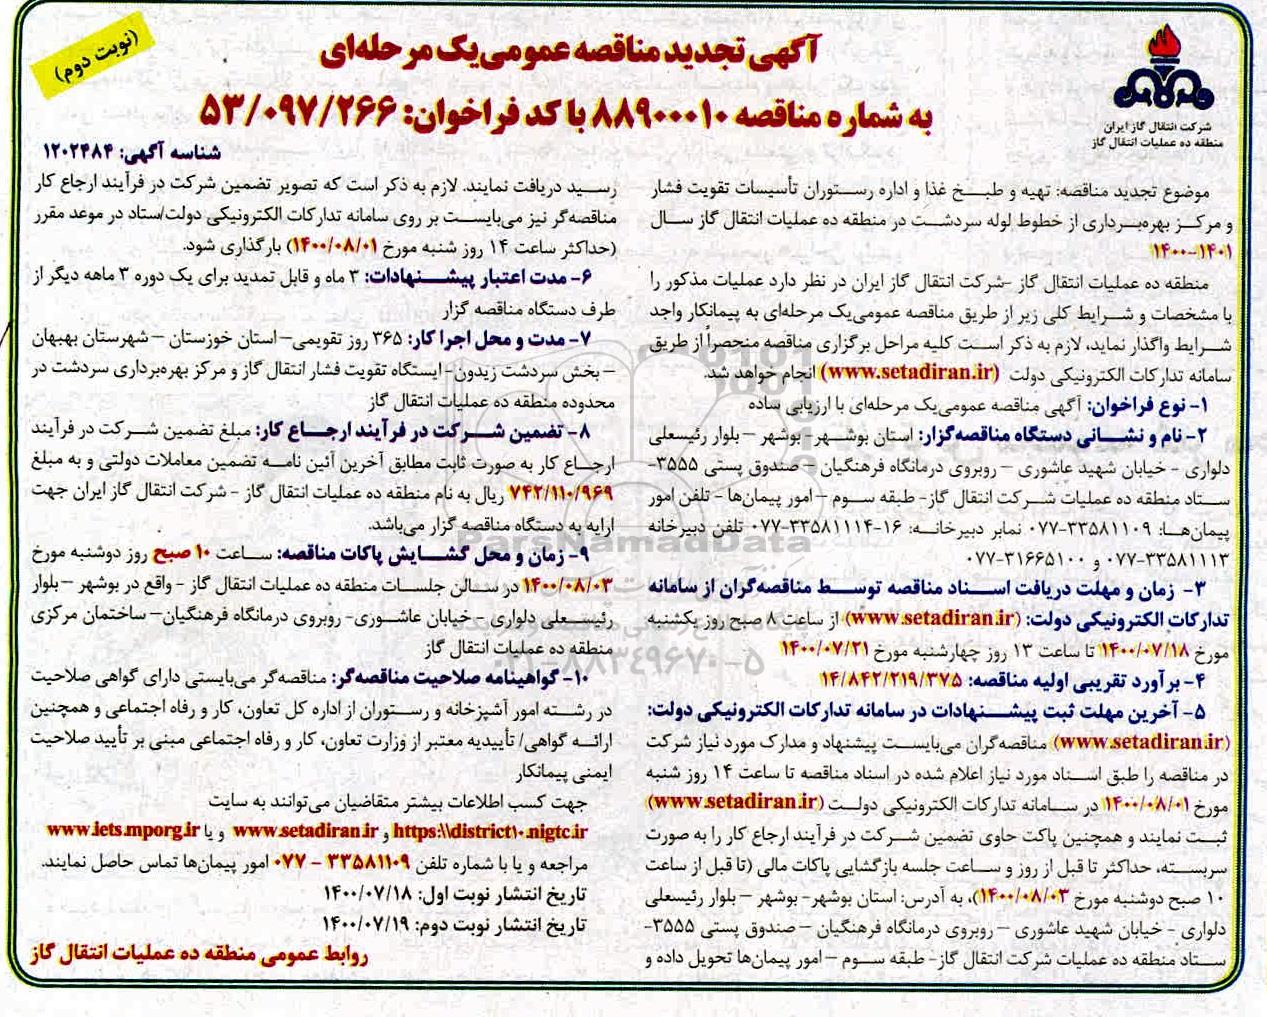 (نوبت دوم)
آگهی تجدید مناقصه عمومی یک مرحله‌ای
به شماره مناقصه ۸۸۹۰۰۰۰۱۰ با کد فراخوان: ۵۳/۰۹۷/۲۶۶
شرکت انتقال گاز ایران
منطقه ده عملیات انتقال گاز
شناسه آگهی: ۱۲۰۲۴۸۴
موضوع تجدید مناقصه: تهیه و طبخ غذا و اداره رستوران تأسیسات تقویت فشار
و مرکز بهره‌برداری از خطوط لوله سردشت در منطقه ده عملیات انتقال گاز سال
۱۴۰۰-۱۴۰۱
منطقه ده عملیات انتقال گاز -شرکت انتقال گاز ایران در نظر دارد عملیات مذکور را
با مشخصات و شرایط کلی زیر از طریق مناقصه عمومی یک مرحله‌ای به پیمانکار واجد
شرایط واگذار نماید، لازم به ذکر است کلیه مراحل برگزاری مناقصه منحصراً از طریق
سامانه تدارکات الکترونیکی دولت (www.setadiran.ir) انجام خواهد شد.
۱- نوع فراخوان: آگهی مناقصه عمومی یک مرحله‌ای با ارزیابی ساده
۲- نام و نشانی دستگاه مناقصه‌گزار: استان بوشهر- بوشهر – بلوار رئیسعلی
دلواری - خیابان شهید عاشوری – روبروی درمانگاه فرهنگیان – صندوق پستی ۳۵۵۵-
ستاد منطقه ده عملیات شرکت انتقال گاز- طبقه سوم – امور پیمان‌ها - تلفن امور
پیمان‌ها: ۳۳۵۸۱۱۰۹-۰۷۷ نمابر دبیرخانه: ۱۶-۳۳۵۸۱۱۱۴-۰۷۷ تلفن دبیرخانه
۳۳۵۸۱۱۱۳-۰۷۷ و ۳۱۶۶۵۱۰۰-۰۷۷
۳- زمان و مهلت دریافت اسناد مناقصه توسط مناقصه‌گران از سامانه
تدارکات الکترونیکی دولت: (www.setadiran.ir) از ساعت ۸ صبح روز یکشنبه
مورخ ۱۴۰۰/۰۷/۱۸ تا ساعت ۱۳ روز چهارشنبه مورخ ۱۴۰۰/۰۷/۲۱
۴- برآورد تقریبی اولیه مناقصه: ۱۴/۸۴۲/۲۱۹/۳۷۵
۵- آخرین مهلت ثبت پیشنهادات در سامانه تدارکات الکترونیکی دولت:
(www.setadiran.ir) مناقصه‌گران می‌بایست پیشنهاد و مدارک مورد نیاز شرکت
در مناقصه را طبق اسناد مورد نیاز اعلام شده در اسناد مناقصه تا ساعت ۱۴ روز شنبه
مورخ ۱۴۰۰/۰۸/۰۱ در سامانه تدارکات الکترونیکی دولت (www.setadiran.ir)
ثبت نمایند و همچنین پاکت حاوی تضمین شرکت در فرآیند ارجاع کار را به صورت
سربسته، حداکثر تا قبل از روز و ساعت جلسه بازگشایی پاکات مالی (تا قبل از ساعت
۱۰ صبح دوشنبه مورخ ۱۴۰۰/۰۸/۰۳)، به آدرس: استان بوشهر- بوشهر – بلوار رئیسعلی
دلواری - خیابان شهید عاشوری – روبروی درمانگاه فرهنگیان – صندوق پستی ۳۵۵۵-
ستاد منطقه ده عملیات شرکت انتقال گاز- طبقه سوم – امور پیمان‌ها تحویل داده و
رسید دریافت نمایند. لازم به ذکر است که تصویر تضمین شرکت در فرآیند ارجاع کار
مناقصه‌گر نیز می‌بایست بر روی سامانه تدارکات الکترونیکی دولت/ستاد در موعد مقرر
(حداکثر ساعت ۱۴ روز شنبه مورخ ۱۴۰۰/۰۸/۰۱) بارگذاری شود.
۶- مدت اعتبار پیشنهادات: ۳ ماه و قابل تمدید برای یک دوره ۳ ماهه دیگر از
طرف دستگاه مناقصه گزار
۷- مدت و محل اجرا کار: ۳۶۵ روز تقویمی– استان خوزستان – شهرستان بهبهان
– بخش سردشت زیدون- ایستگاه تقویت فشار انتقال گاز و مرکز بهره‌برداری سردشت در
محدوده منطقه ده عملیات انتقال گاز
۸- تضمین شرکت در فرآیند ارجاع کار: مبلغ تضمین شرکت در فرآیند
ارجاع کار به صورت ثابت مطابق آخرین آئین نامه تضمین معاملات دولتی و به مبلغ
۷۴۲/۱۱۰/۹۶۹ ریال به نام منطقه ده عملیات انتقال گاز - شرکت انتقال گاز ایران جهت
ارایه به دستگاه مناقصه گزار می‌باشد.
۹- زمان و محل گشایش پاکات مناقصه: ساعت ۱۰ صبح روز دوشنبه مورخ
۱۴۰۰/۰۸/۰۳ در سالن جلسات منطقه ده عملیات انتقال گاز - واقع در بوشهر – بلوار
رئیسعلی دلواری - خیابان عاشوری- روبروی درمانگاه فرهنگیان– ساختمان مرکزی
منطقه ده عملیات انتقال گاز
۱۰- گواهینامه صلاحیت مناقصه‌گر: مناقصه‌گر می‌بایستی دارای گواهی صلاحیت
در رشته امور آشپزخانه و رستوران از اداره کل تعاون، کار و رفاه اجتماعی و همچنین
ارائه گواهی/ تأییدیه معتبر از وزارت تعاون، کار و رفاه اجتماعی مبنی بر تأیید صلاحیت
ایمنی پیمانکار
جهت کسب اطلاعات بیشتر متقاضیان می‌توانند به سایت
https:\\district۱۰.nigtc.ir و www.setadiran.ir و یا www.iets.mporg.ir
مراجعه و یا با شماره تلفن ۳۳۵۸۱۱۰۹ – ۰۷۷ امور پیمان‌ها تماس حاصل نمایند.
تاریخ انتشار نوبت اول: ۱۴۰۰/۰۷/۱۸
تاریخ انتشار نوبت دوم: ۱۴۰۰/۰۷/۱۹
روابط عمومی منطقه ده عملیات انتقال گاز
ParsNamadData
۰۲۱-۸۸۳۴۹۶۷۰-۵